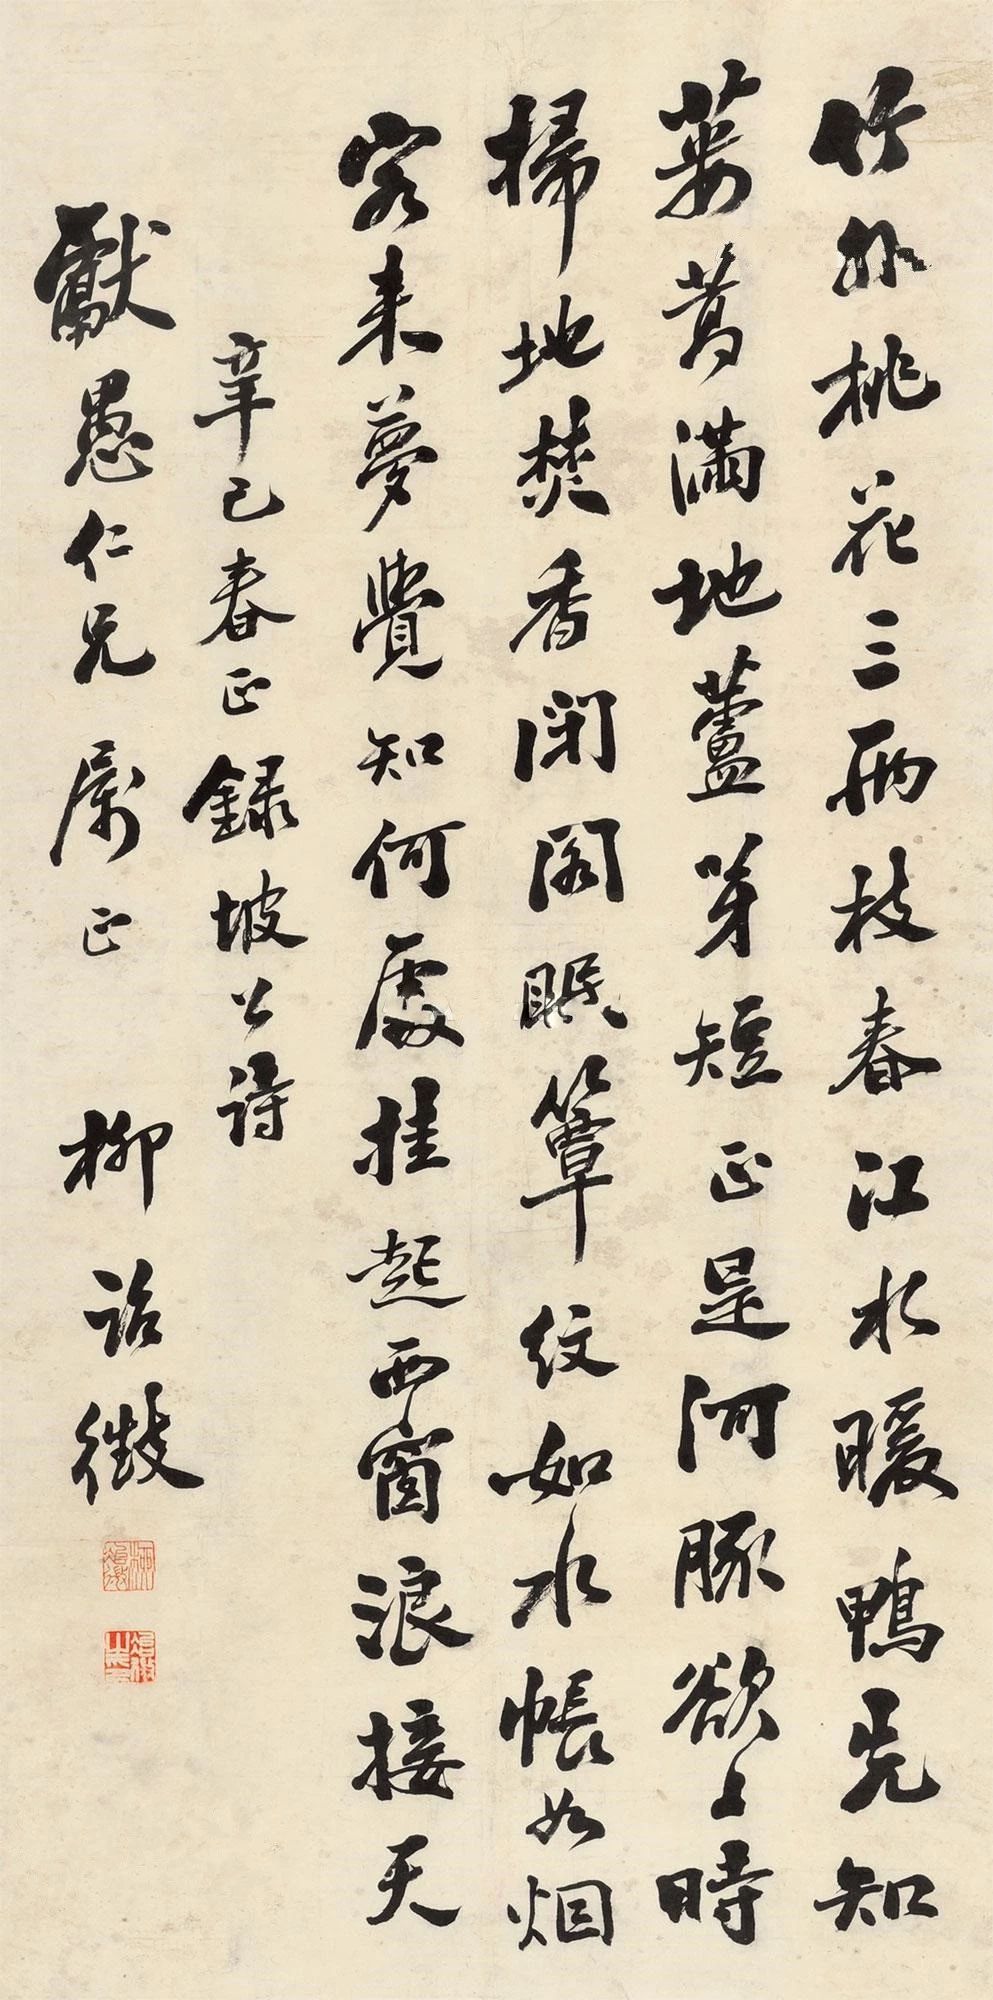 竹外桃花三兩枝春江水暖鴨先知
蔞蒿滿地蘆芽短正是河豚欲上時
掃地焚香閉閣眠簟紋如水帳如烟
客來夢覺知何處挂起西窗浪接天
辛巳春正録坡公詩
獻愚仁兄屬正 柳詒徵